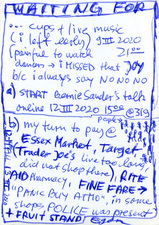 WAITING FOR
... cups + live music
(i left early) 9 III 2020
(painful to watch 21 00
demon → i MISSED that
b/c i always say NO NO NO
a) START Bernie Sander's talk
online 12 III 2020 1500 @319
b) my turn to pay @
Essex Market, Target
Trader Joe's (live too long,
did not shop there), RITE-
AID Pharmacy, FINE FARE →
"PANIC BUY ATTIC", in some
shops POLICE was present
+ FRUIT STAND